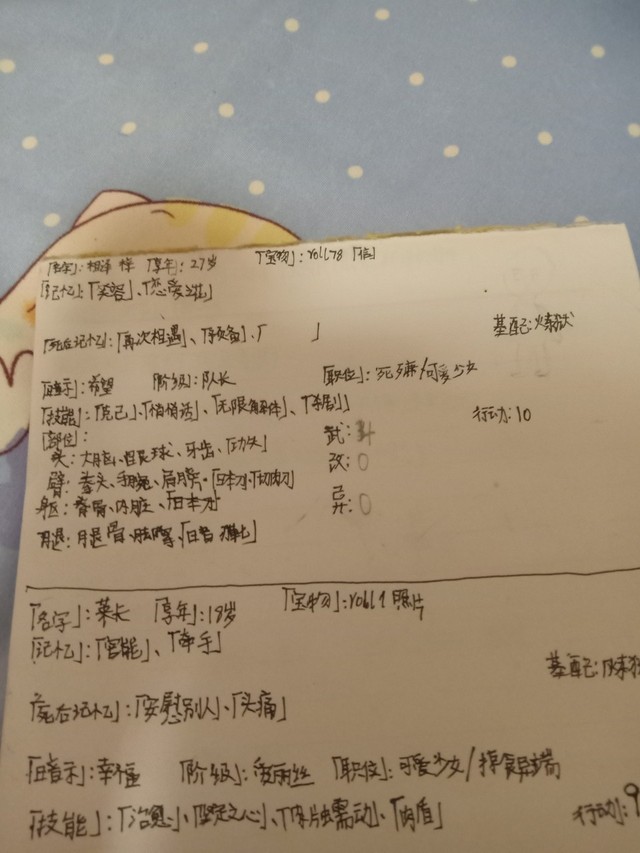 「名字」:相泽 梓 「享年」:27岁 「宝物」:roll78「信」
「记忆」:「笑容」、「恋爱」
「死后记忆」:「再次相遇」、「预备」、「 」
基配:炼狱
「暗示」:希望 「阶级」:队长 「职位」:死/可爱少女
「技能」:「克己」、「悄悄话」、「无限解体」、「杀剧」
行动:10
「部位」:
武:
头:大脑、眼球、牙齿、「功夫」
改:0
臂:拳头、手腕、肩膀、「日本刀」、「切肉刀」
躯:脊骨、内脏、「日本刀」
异:0
腿:腿骨、
「名字」:菜长 「享年」:19岁 「宝物」:roll1 照片
「记忆」:「官能」、「牵手」
基配:
「死后记忆」:「安慰别人」、「头痛」
「暗示」:幸福 「阶级」:爱丽丝 「职位」:可爱少女/
「技能」:「治愈」、「坚定之心」、「体蠕动」、「肉盾」
行动:9